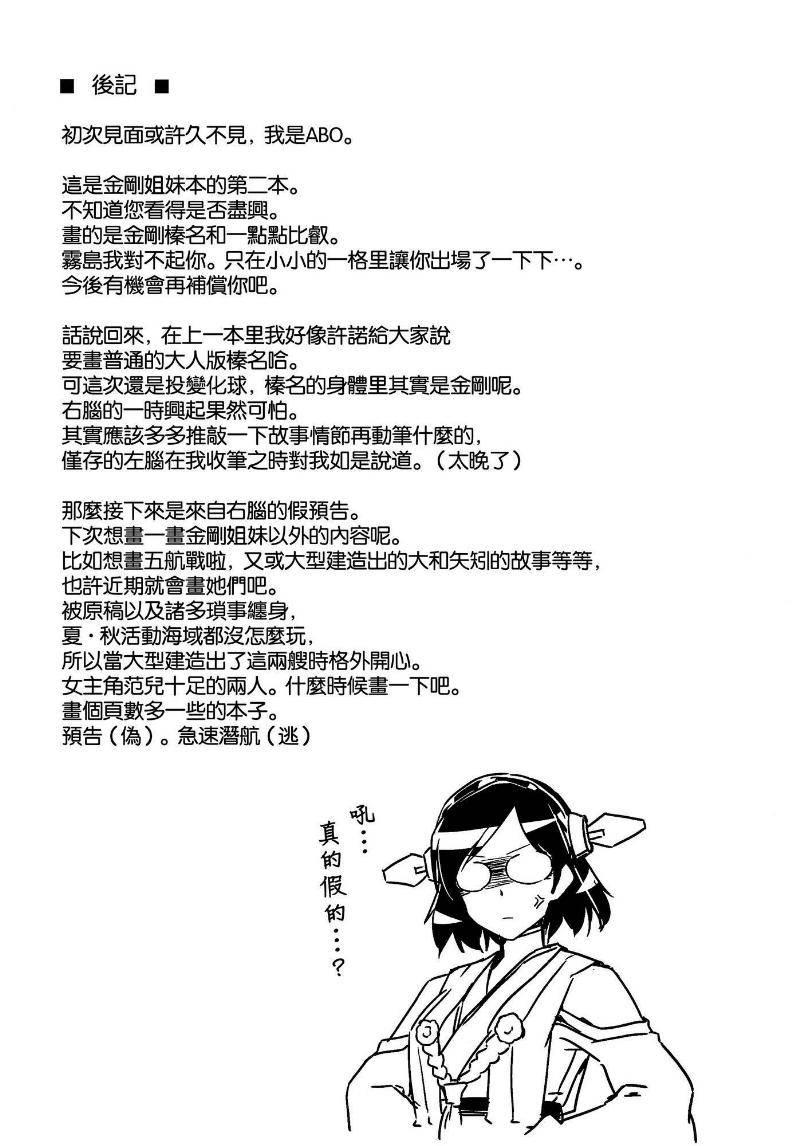 ■ 後記 ■
初次見面或許久不見, 我是ABO。
這是金剛姐妹本的第二本。
不知道您看得是否盡興。
畫的是金剛榛名和一點點比叡。
霧島我對不起你。只在小小的一格里讓你出場了一下下…。
今後有機會再補償你吧。
話說回來, 在上一本里我好像許諾給大家說
要畫普通的大人版榛名哈。
可這次還是投變化球, 榛名的身體里其實是金剛呢。
右腦的一時興起果然可怕。
其實應該多多推敲一下故事情節再動筆什麼的,
僅存的左腦在我收筆之時對我如是說道。(太晚了)
那麼接下來是來自右腦的假預告。
下次想畫一畫金剛姐妹以外的內容呢。
比如想畫五航戰啦, 又或大型建造出的大和矢矧的故事等等,
也許近期就會畫她們吧。
被原稿以及諸多瑣事纏身,
夏·秋活動海域都沒怎麼玩,
所以當大型建造出了這兩艘時格外開心。
女主角范兒十足的兩人。什麼時候畫一下吧。
畫個頁數多一些的本子。
預告(偽)。急速潛航(逃)
吼…
真的假的…?